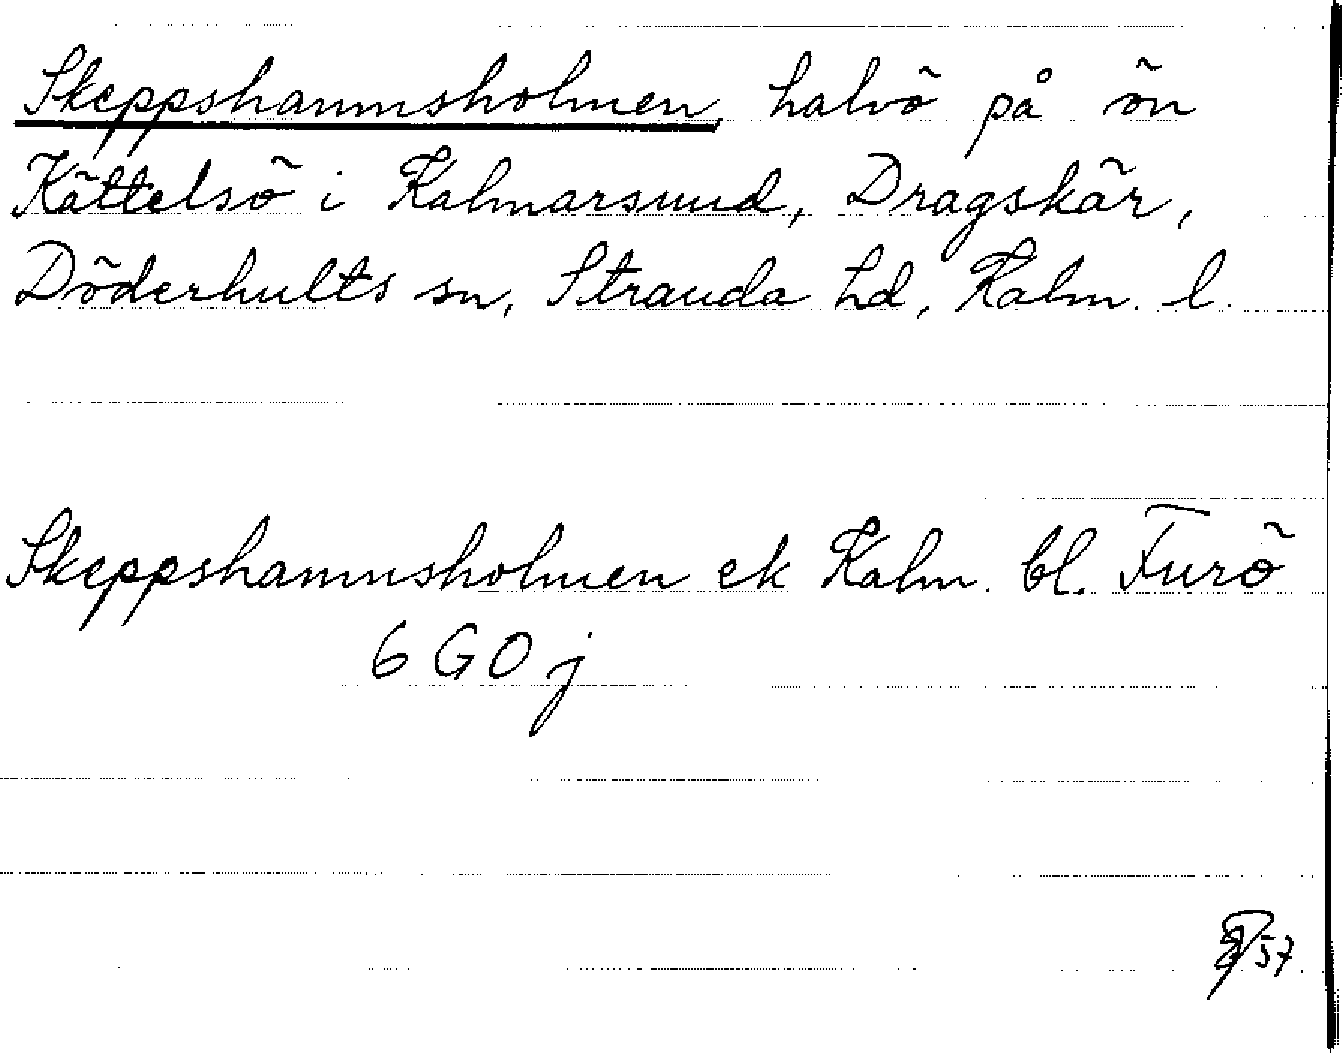 Skeppshamnsholmen, halvö på ön
Kättelsö i Kalmarsund, Dragskär,
Döderhults sn, Stranda hd, Kalm. l.
Skeppshamnsholmen ek Kalm. bl. Furö
6 G 0 j
57